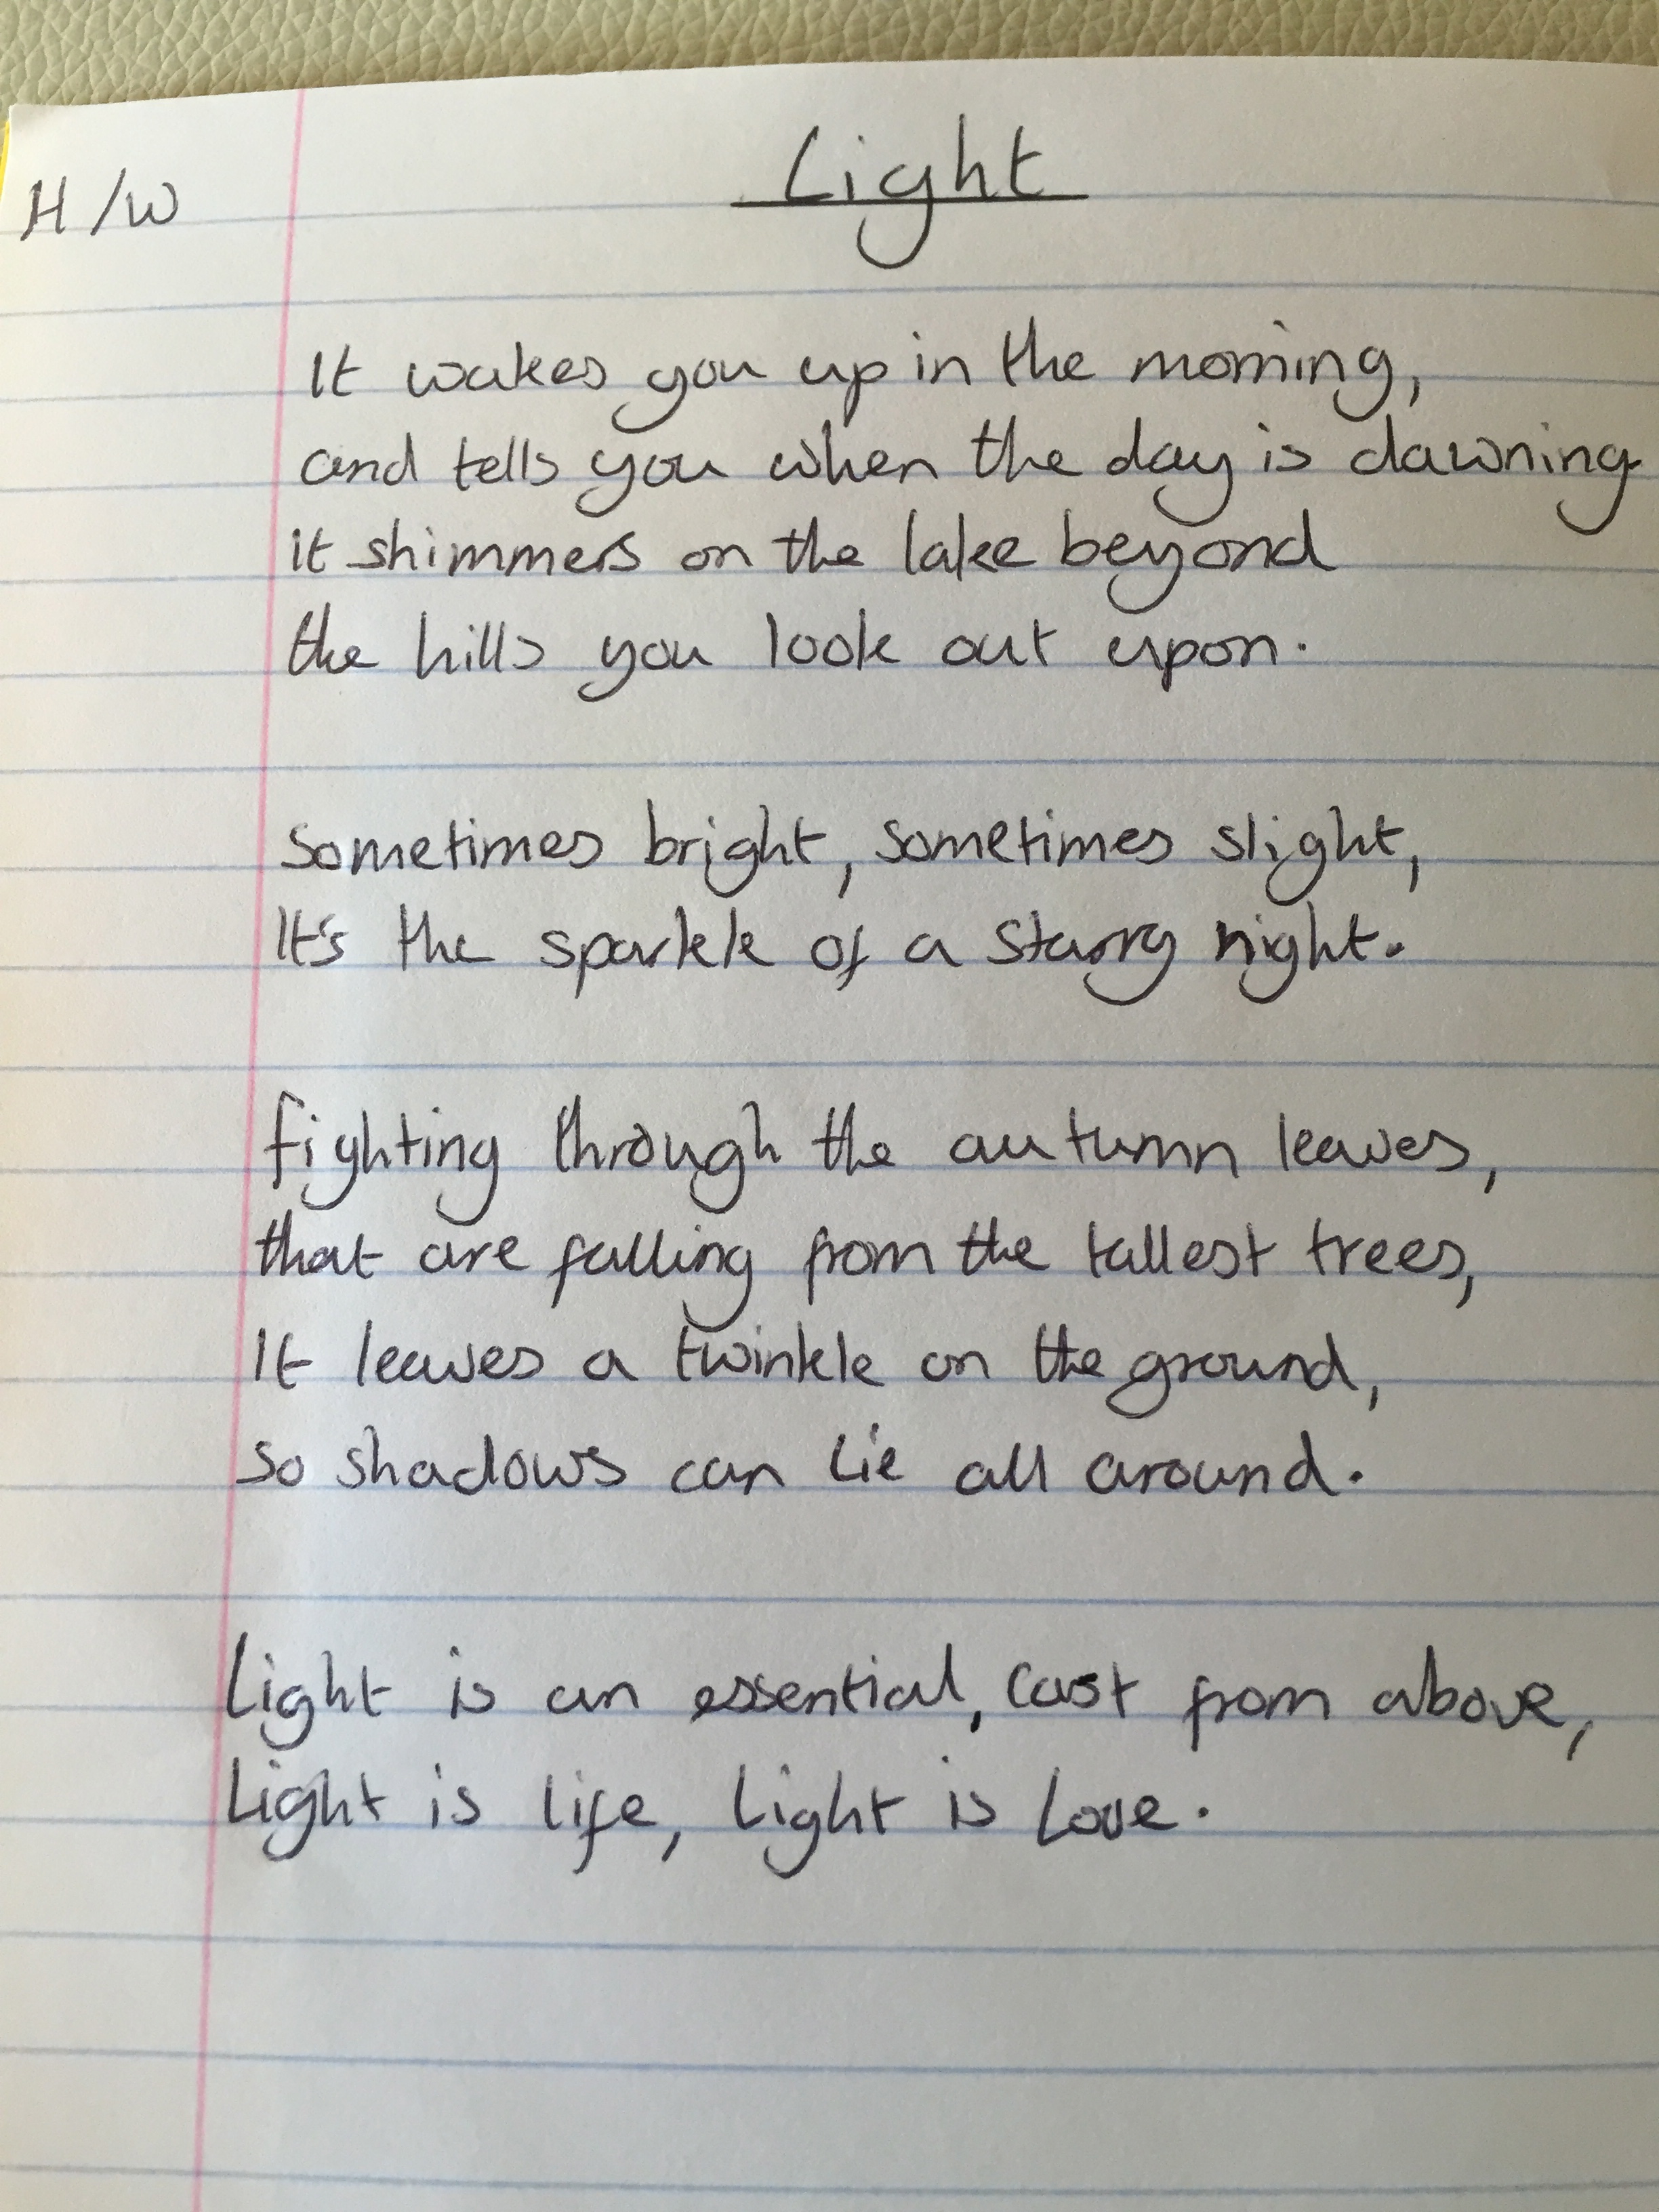 Light
H/W
It wakes you up in the morning,
and tells you when the day is dawning
it shimmers on the lake beyond
the hills you look out upon.
Sometimes bright, sometimes slight,
It's the sparkle of a starry night.
fighting through the autumn leaves,
that are falling from the tallest trees,
It leaves a twinkle on the ground,
so shadows can lie all around.
Light is an essential, cast from above,
Light is life, Light is Love.